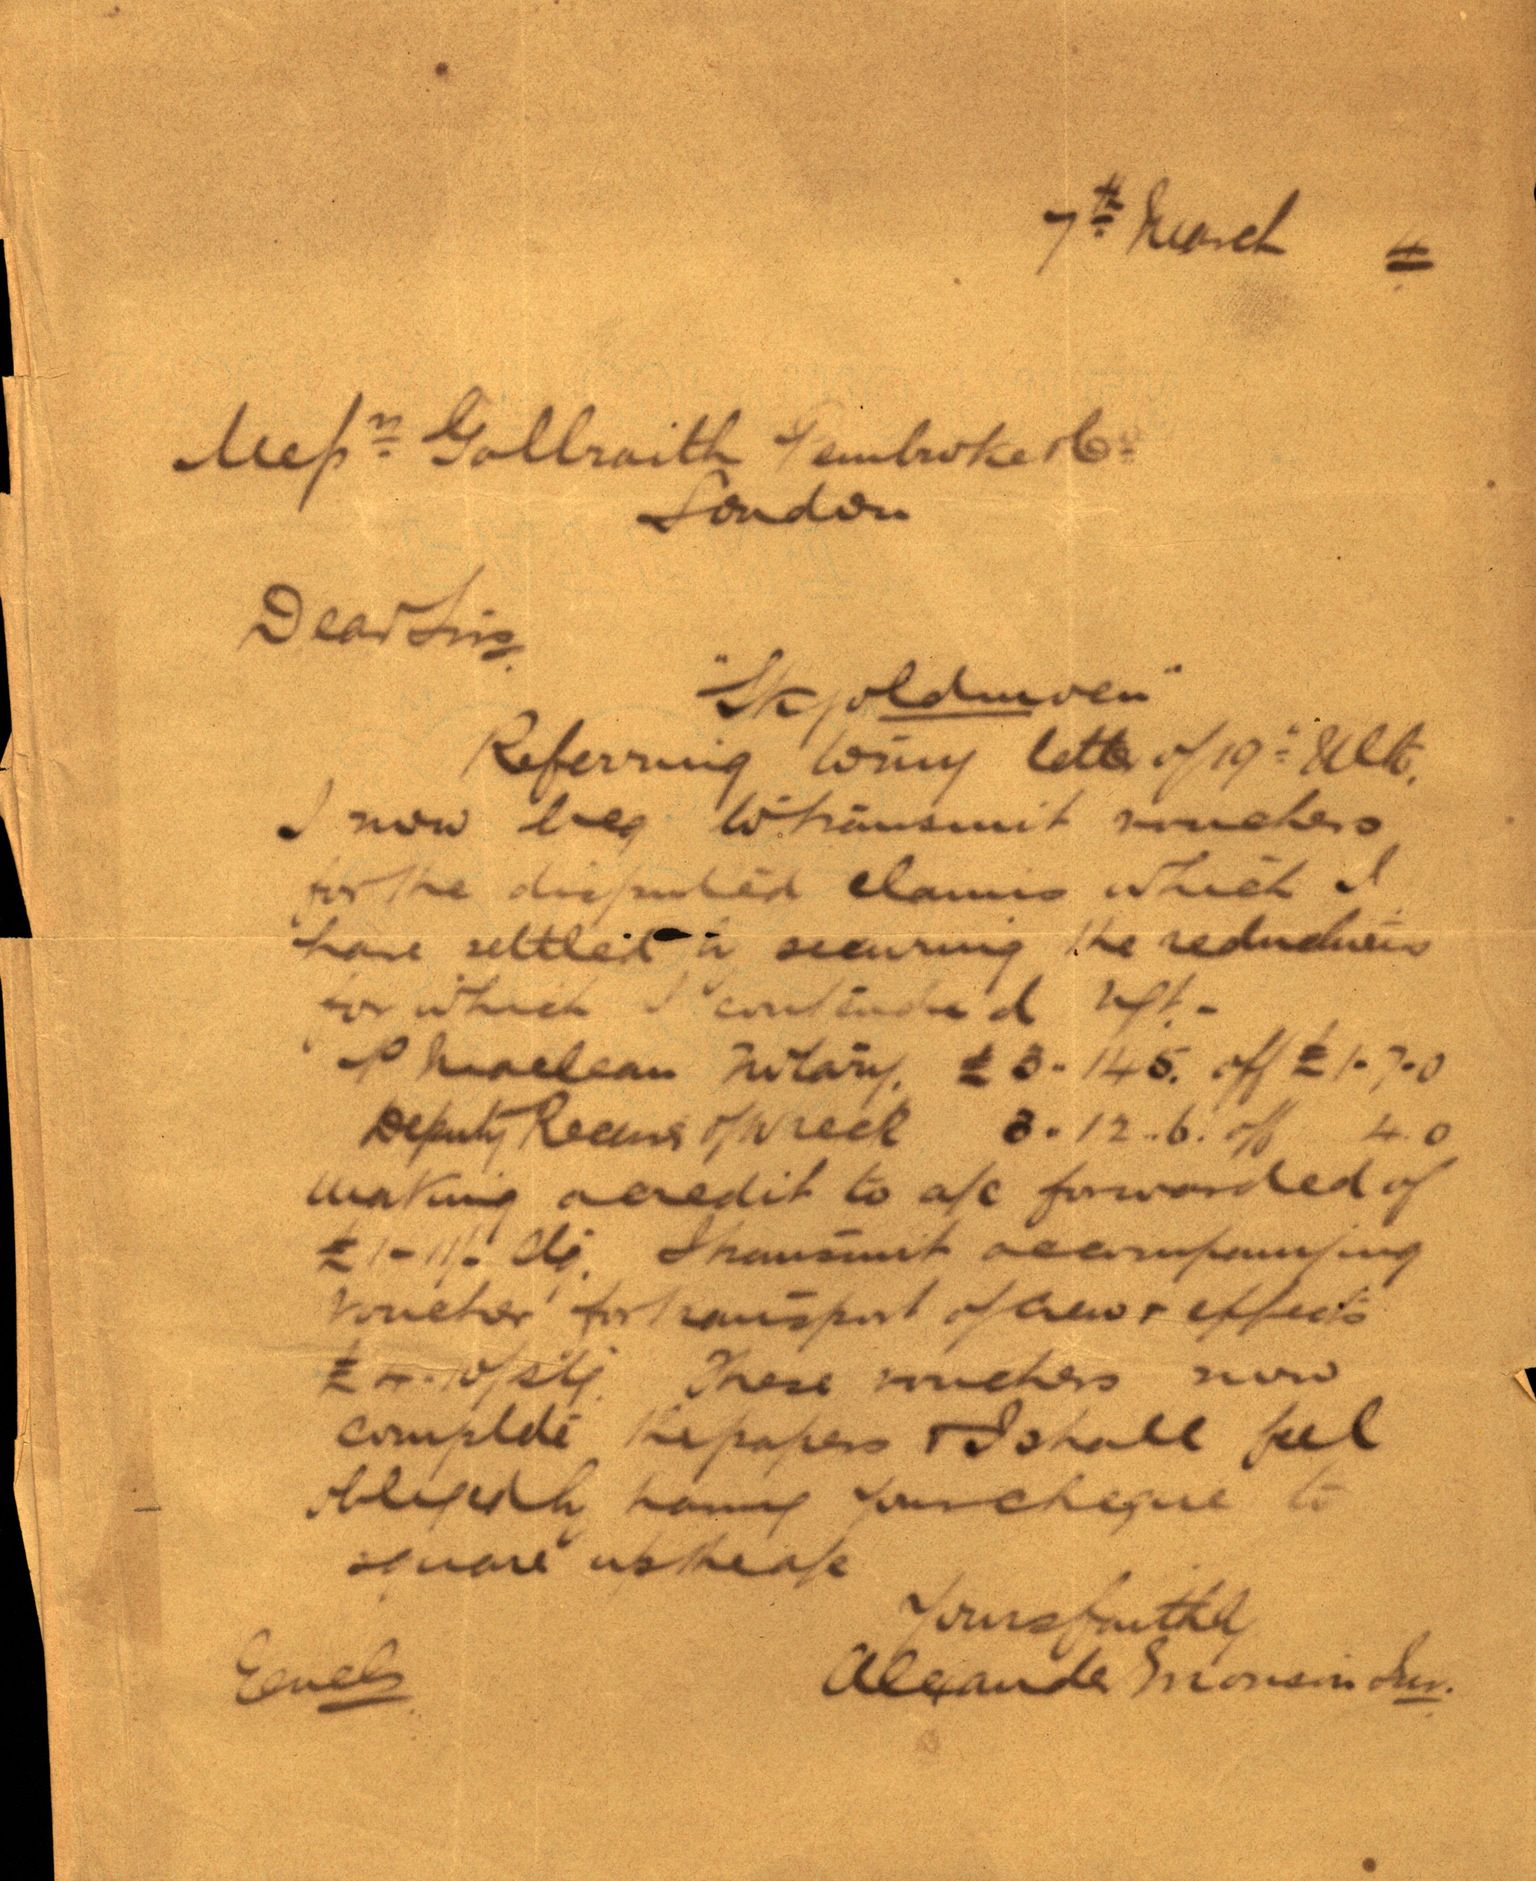 7th March 4
Messrs Galbraith Pembroke & Co
London
Dear Sirs
"Skjoldmoen"
Referring to my letter of 19th Ulto.
I now beg to transmit vouchers
for the disputed claims which I
have settled by securing the reductions
for which I contended
Maclean Notary. £3-14 off £1-7-0
Deputy Receiver of Wreck 3.12.6. off 4.0
making a credit to a/c forwarded of
£1-11/- Stg. I transmit accompanying
voucher for transport of crew & effects
Stg. These vouchers now
complete the papers & I shall feel
obliged by having your cheque to
square up the a/c
Yours faithfully
Encls
Alexander Jnr.